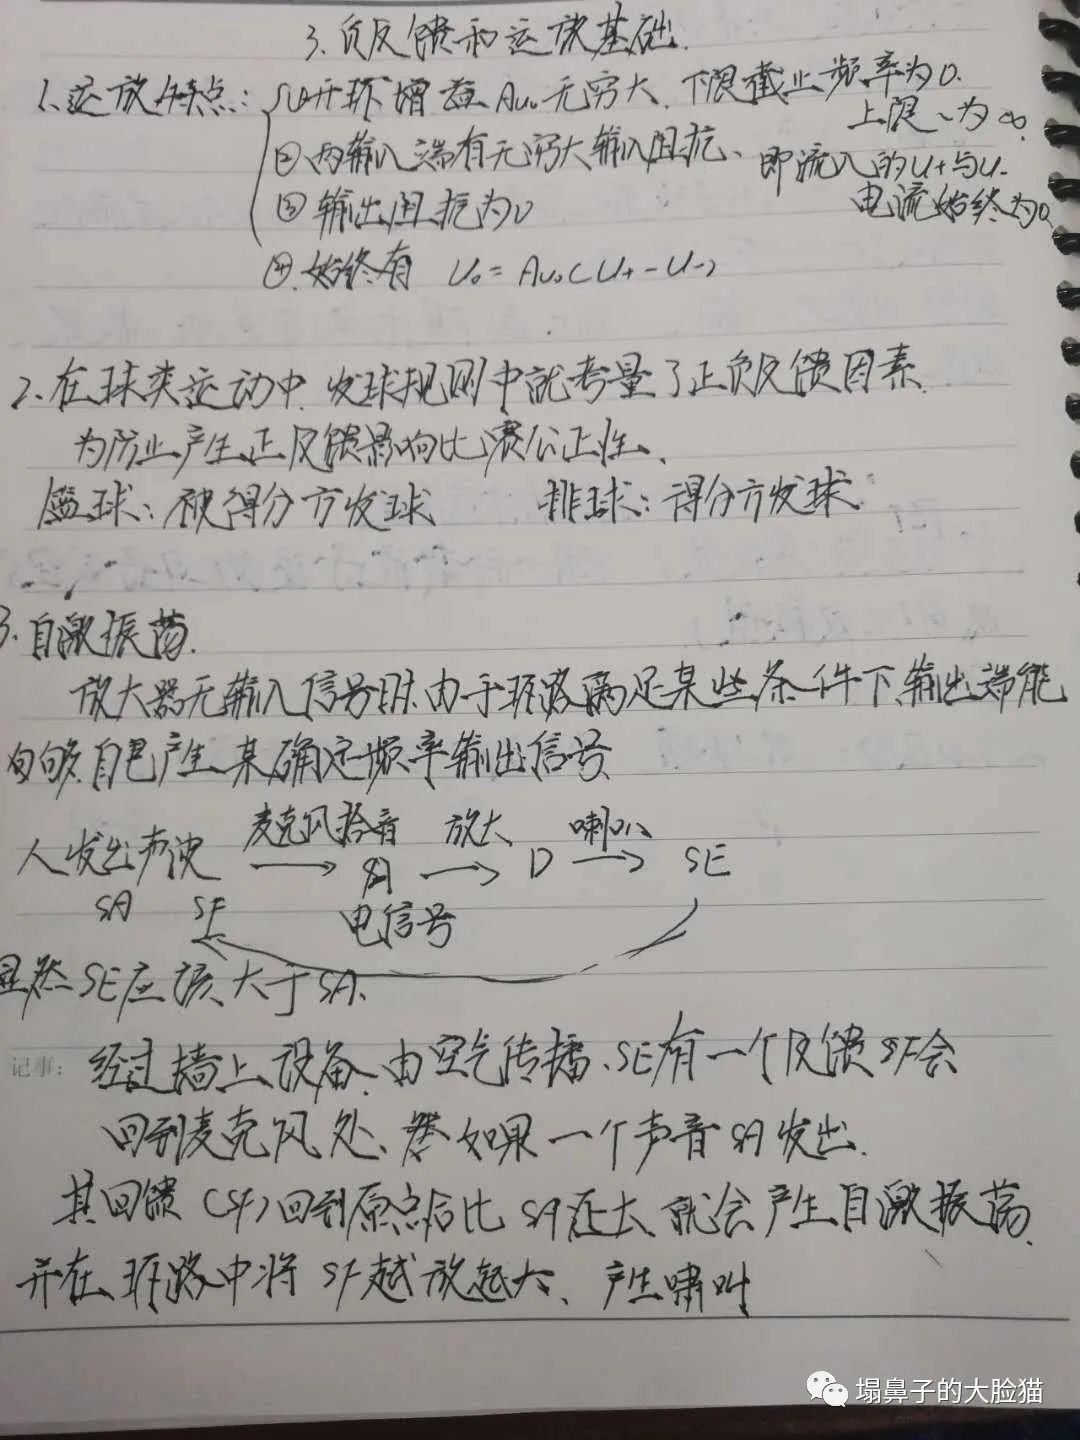 3. 负反馈和运放基础.
1. 运放特点: ①开环增益 Auo 无穷大. 下限截止频率为0.
上限~为∞.
②两输入端有无穷大输入阻抗、即流入的U+与U-
③输出阻抗为0 电流始终为0.
④.始终有 Uo = Auo(U+-U-)
2. 在球类运动中. 发球规则中就考量了正负反馈因素.
为防止产生正反馈影响比赛公正性.
篮球: 被得分方发球 排球: 得分方发球
3. 自激振荡.
放大器无输入信号时. 由于环路满足某些条件下输出端能
够自己产生某确定频率输出信号
人发出声波 麦克风拾音 → 放大 → D 喇叭 → SE
SA SF 电信号
显然 SE应该大于SA.
记事: 经过墙上设备.由空气传播、SE有一个反馈SF会
回到麦克风处、如果一个声音SA发出.
其回馈(SF)回到原点后比SA还大、就会产生自激振荡.
并在环路中将SF越放越大、产生啸叫
塌鼻子的大脸猫